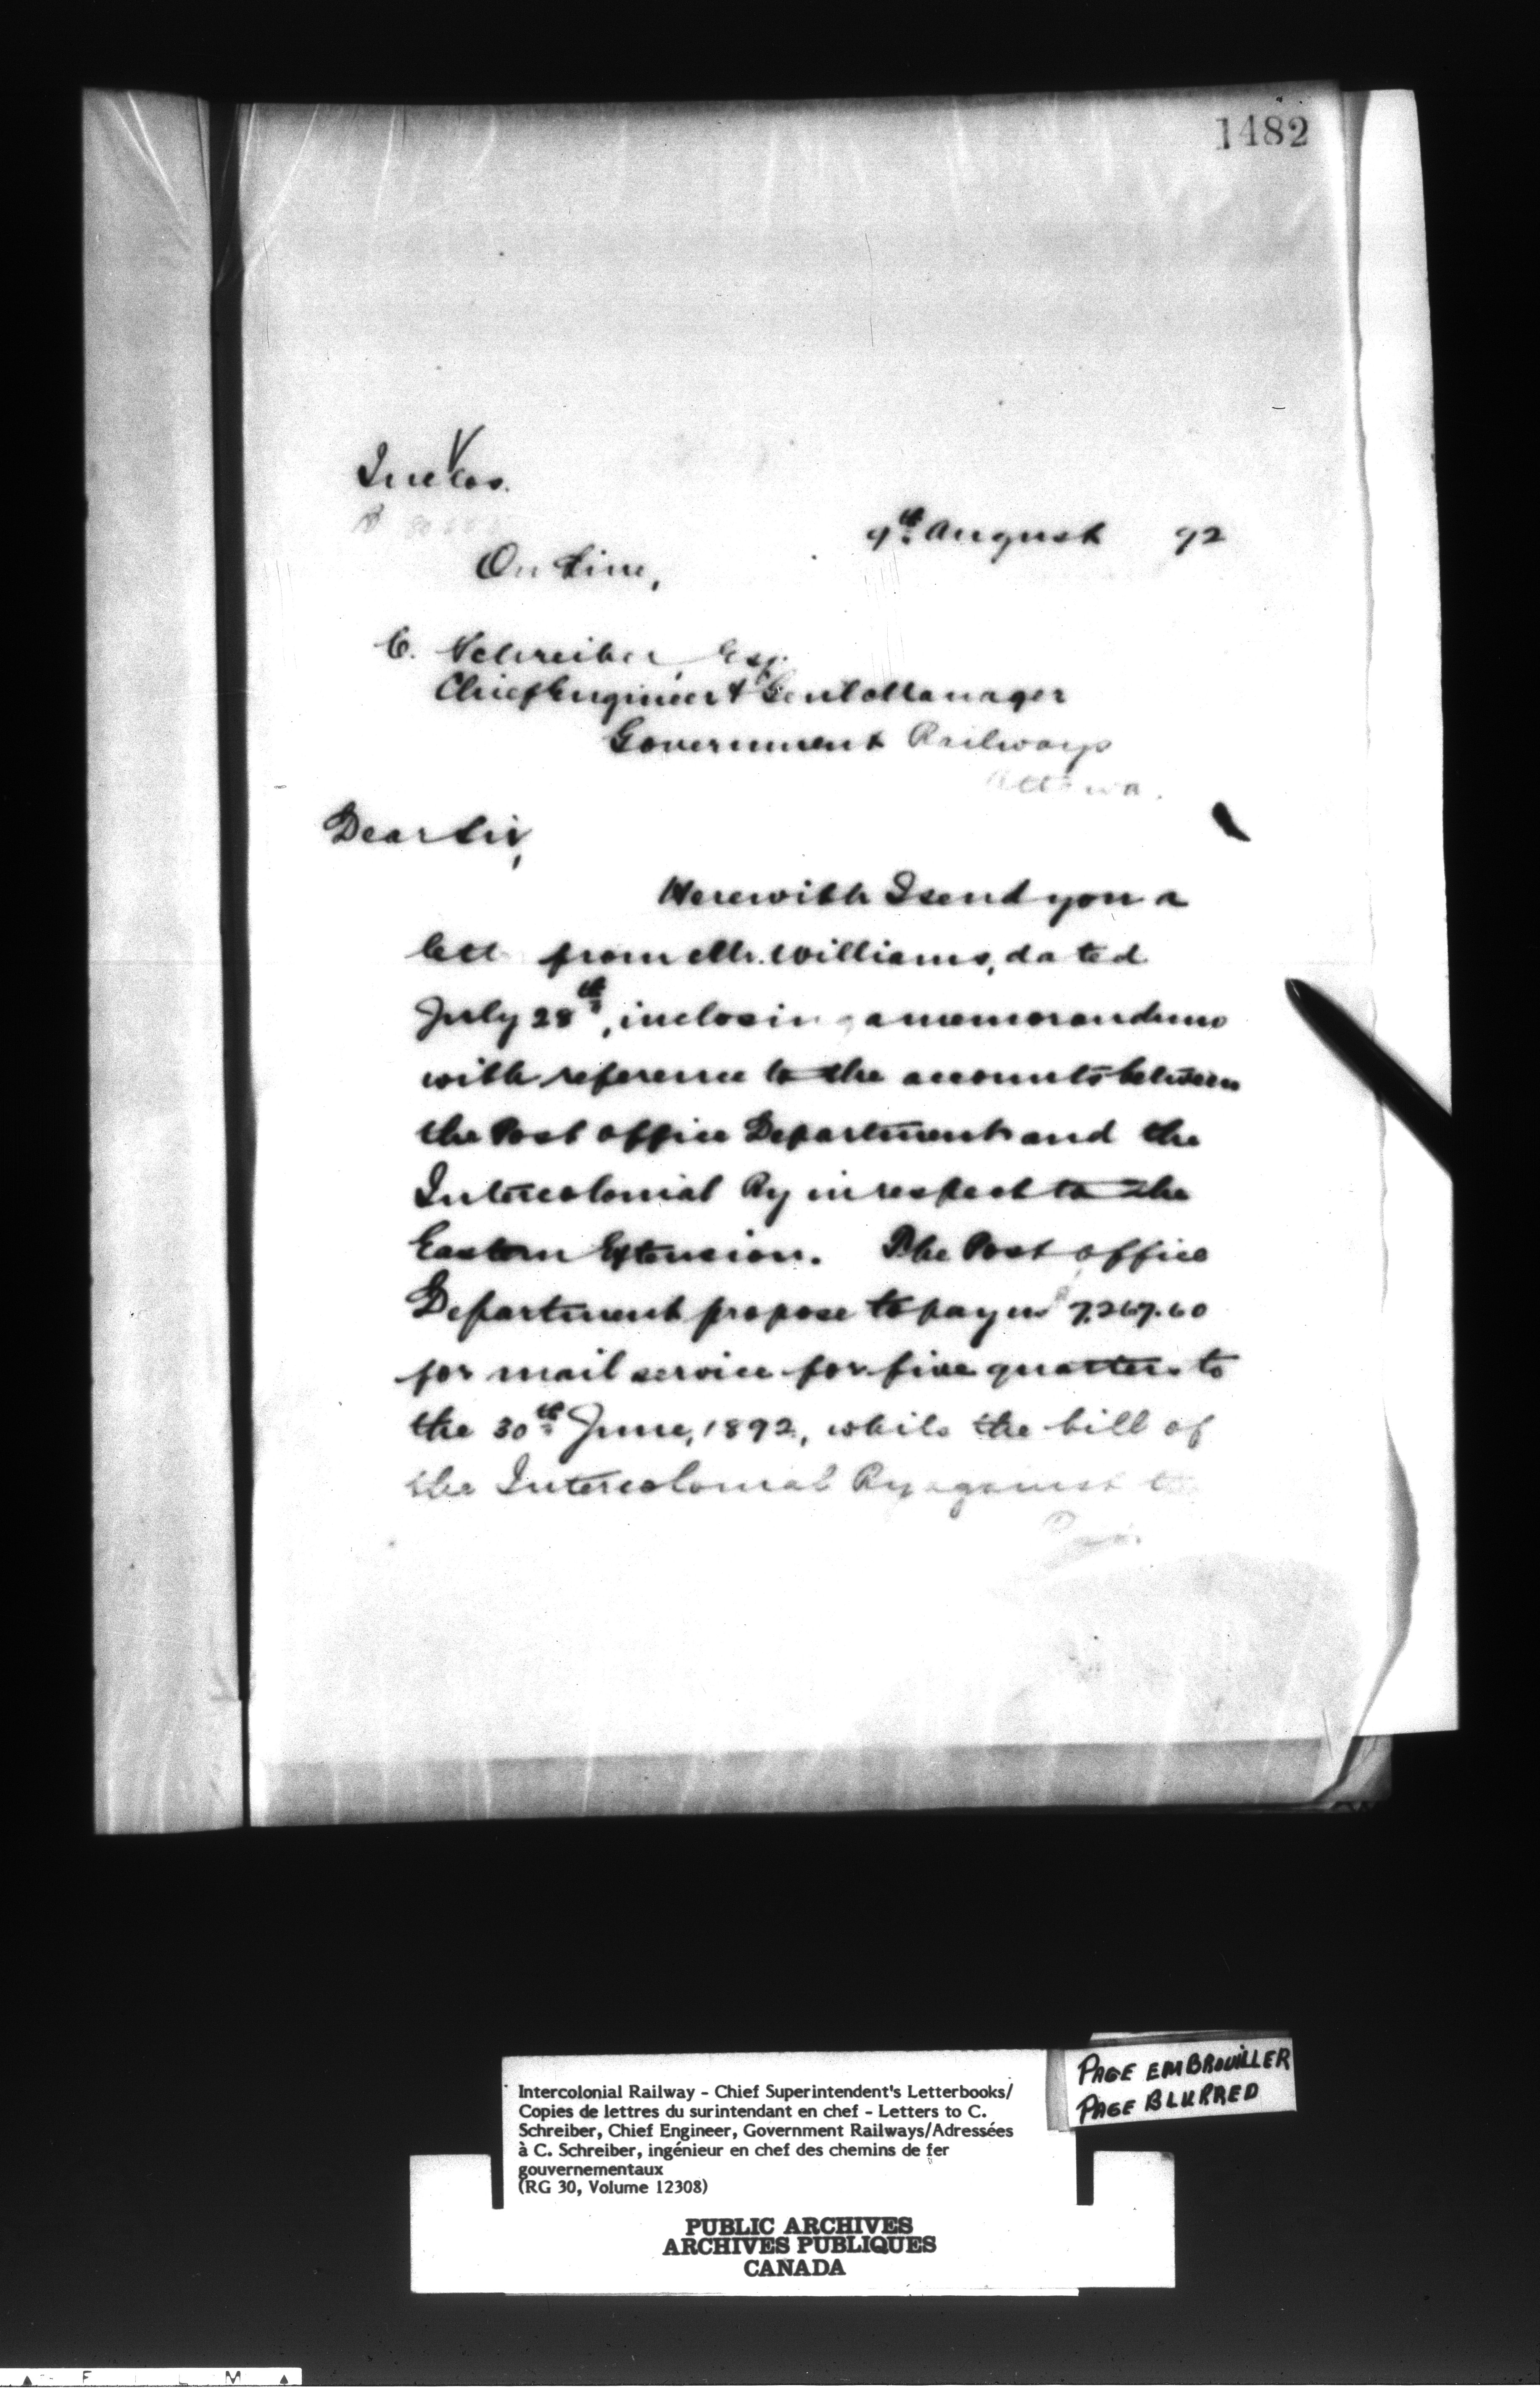 1482
Inclos.
9th August 92
On Line,
C. Schreiber, Esq.
Chief Engineer & Genl Manager
Government Railways
Ottawa.
Dear Sir,
Herewith I send you a
lett from Mr. Williams, dated
July 28th, inclosing a memorandum
with reference to the accounts between
the Post office Department and the
Intercolonial Ry in respect to the
Eastern Extension. The Post office
Department propose to pay us 7,267.60
for mail service for five quarters to
the 30th June, 1892, while the bill of
the Intercolonial Ry against the
Intercolonial Railway - Chief Superintendent's Letterbooks/
Copies de lettres du surintendant en chef - Letters to C.
Schreiber, Chief Engineer, Government Railways/Adressées
à C. Schreiber, ingénieur en chef des chemins de fer
gouvernementaux
(RG 30, Volume 12308)
PAGE EMBROUILLER
PAGE BLURRED
PUBLIC ARCHIVES
ARCHIVES PUBLIQUES
CANADA